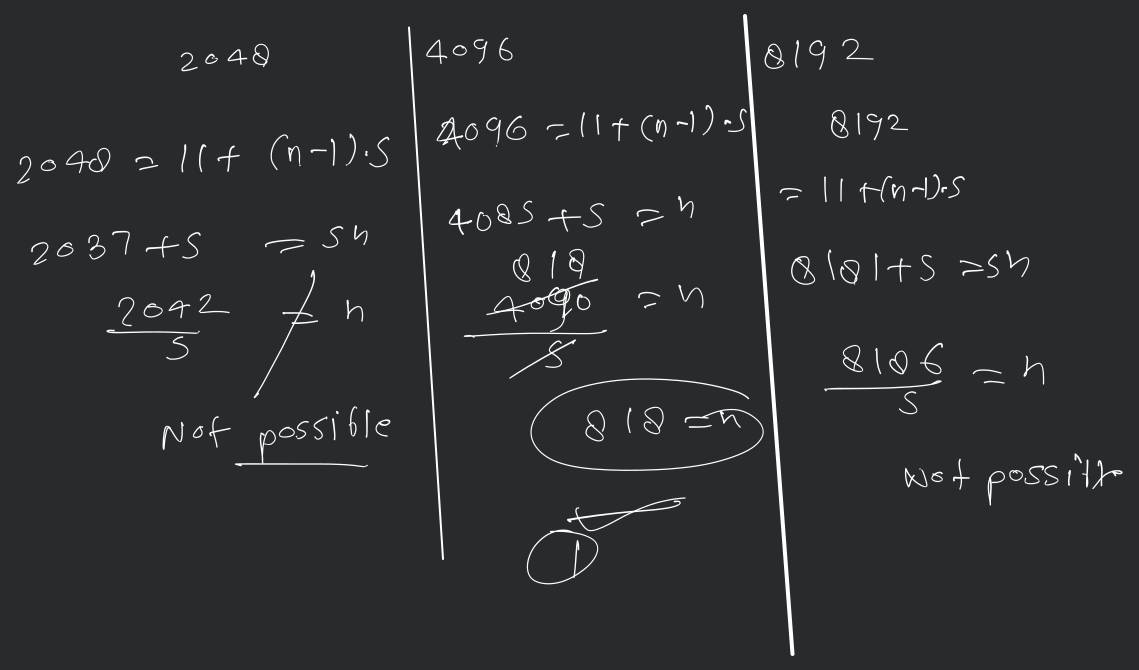 2048
2048 = 11 + (n-1).5
2037 + 5 = 5n
2042/5 ≠ n
Not possible
4096
4096 = 11 + (n-1).5
4085 + 5 = n
818
4090/5 = n
818 = n
1
8192
8192
= 11 + (n-1).5
8181 + 5 = 5n
8186/5 = n
Not possible